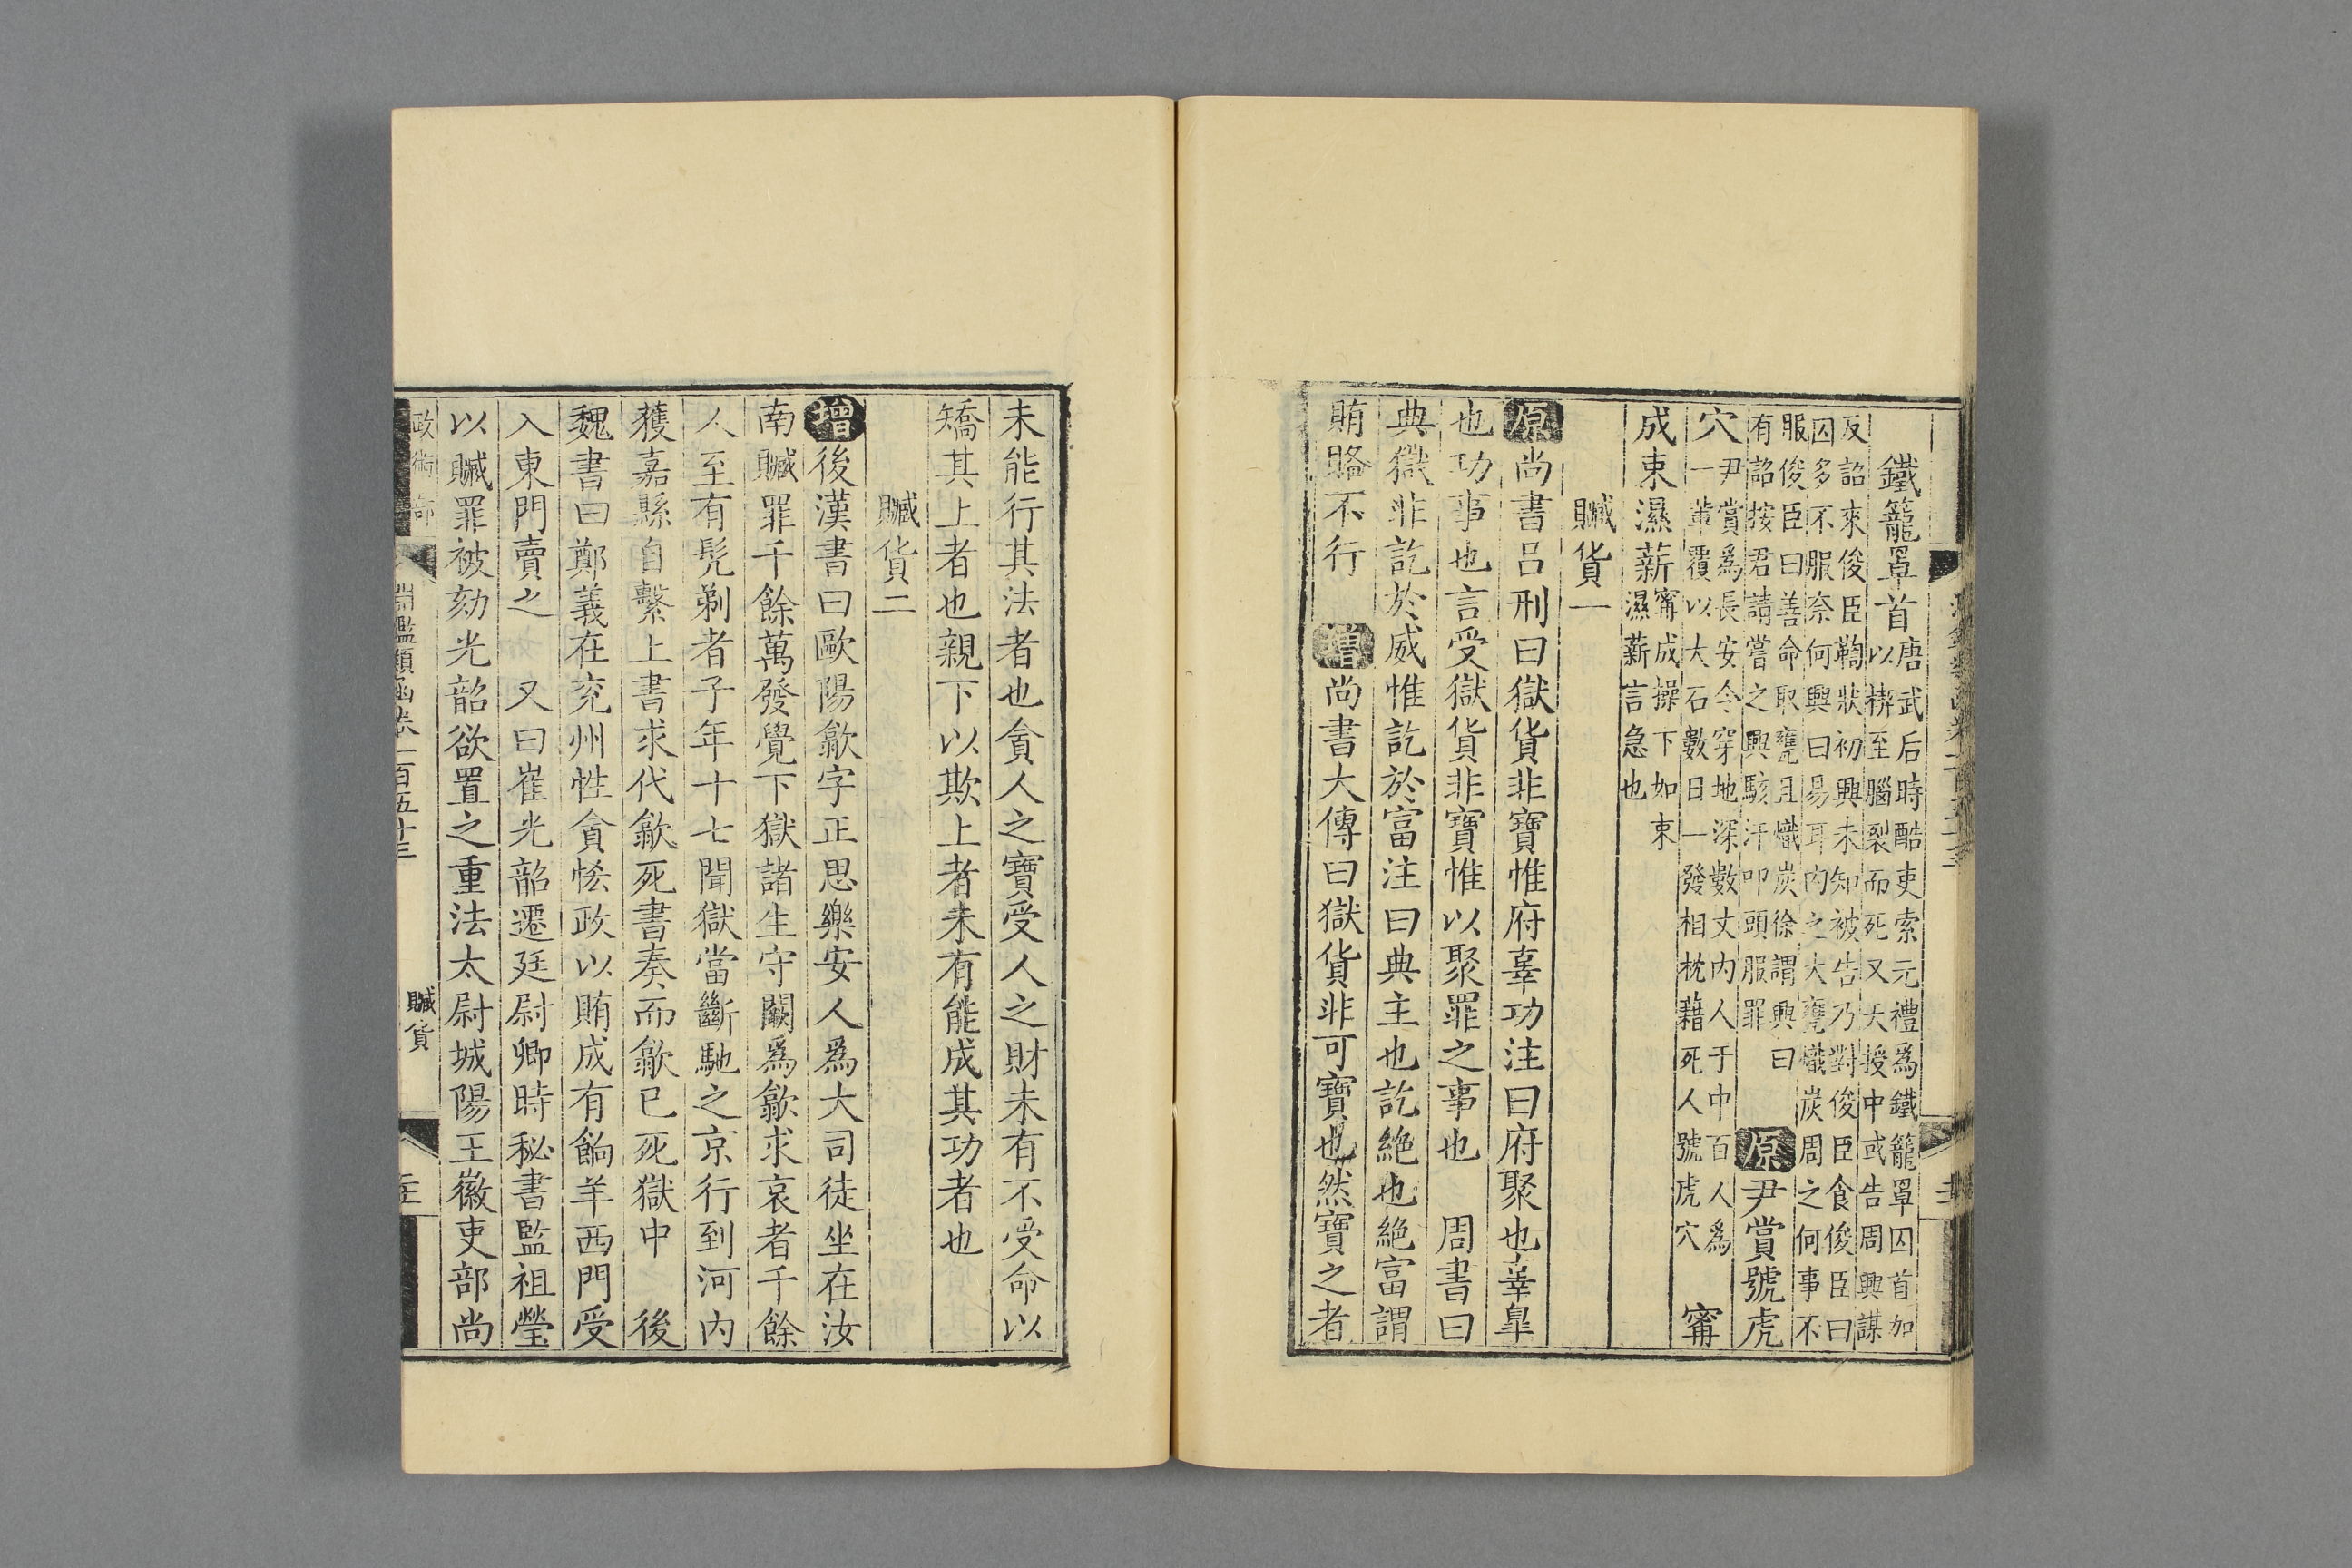 鐵籠罩首唐武后時酷吏索元禮爲鐵籠罩囚首如
以楔至腦裂而死又天授中或告周興謀
反詔來俊臣鞫狀初興未知被告乃對俊臣食俊臣曰
囚多不服奈何興曰易耳內之大甕熾炭周之何事不
服俊臣曰善命取甕且熾炭徐謂興曰
有詔按君請嘗之興駭汗叩頭服罪原尹賞號虎
穴尹賞爲長安令穿地深數丈內人于中百人爲
一輩覆以大石數日一發相枕藉死人號虎穴 甯
成束濕薪甯成操下如束
濕薪言急也
贓貨一
原尚書呂刑曰獄貨非寶惟府辜功注曰府聚也辜辠
也功事也言受獄貨非寶惟以聚罪之事也 周書曰
典獄非訖於威惟訖於富注曰典主也訖絕也絕富謂
賄賂不行 增尚書大傳曰獄貨非可寶也然寶之者
未能行其法者也貪人之寶受人之財未有不受命以
矯其上者也親下以欺上者未有能成其功者也
贓貨二
增後漢書曰歐陽歙字正思樂安人爲大司徒坐在汝
南贓罪千餘萬發覺下獄諸生守闕爲歙求哀者千餘
人至有髡剃者子年十七聞獄當斷馳之京行到河內
獲嘉縣自繫上書求代歙死書奏而歙已死獄中 後
魏書曰鄭義在兗州性貪恡政以賄成有餉羊西門受
入東門賣之 又曰崔光韶遷廷尉卿時秘書監祖瑩
以贓罪被劾光韶欲置之重法太尉城陽王徽吏部尚
政術部
淵鑑類函卷一百五十三
贓貨